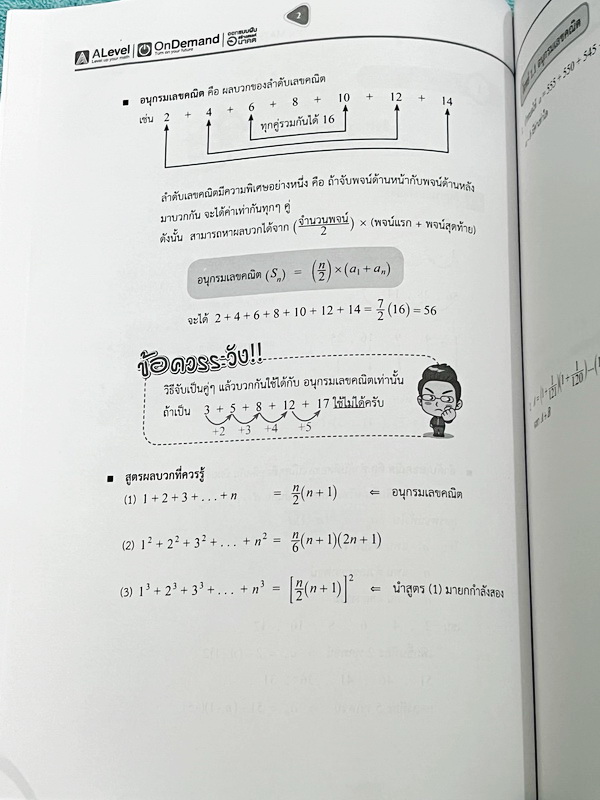 2
ALevel
Level up your math
OnDemand
Turn on your future
ออกแบบฝัน
สร้างสรรค์
อนาคต
อนุกรมเลขคณิต คือ ผลบวกของลำดับเลขคณิต
เช่น 2 + 4 + 6 + 8 + 10 + 12 + 14
ทุกคู่รวมกันได้ 16
ลำดับเลขคณิตมีความพิเศษอย่างหนึ่ง คือ ถ้าจับพจน์ด้านหน้ากับพจน์ด้านหลัง
มาบวกกัน จะได้ค่าเท่ากันทุกๆ คู่
ดังนั้น สามารถหาผลบวกได้จาก (จำนวนพจน์/2) × (พจน์แรก + พจน์สุดท้าย)
อนุกรมเลขคณิต (Sₙ) = (n/2)×(a₁ + aₙ)
จะได้ 2 + 4 + 6 + 8 + 10 + 12 + 14 = 7/2 (16) = 56
ข้อควรระวัง!!
วิธีจับเป็นคู่ๆ แล้วบวกกันใช้ได้กับ อนุกรมเลขคณิตเท่านั้น
ถ้าเป็น 3 + 5 + 8 + 12 + 17 ใช้ไม่ได้ครับ
+2 +3 +4 +5
สูตรผลบวกที่ควรรู้
(1) 1 + 2 + 3 + ... + n = n/2 (n + 1) ⇐ อนุกรมเลขคณิต
(2) 1² + 2² + 3² + ... + n² = n/6 (n + 1)(2n + 1)
(3) 1³ + 2³ + 3³ + ... + n³ = [n/2 (n + 1)]² ⇐ นำสูตร (1) มายกกำลังสอง